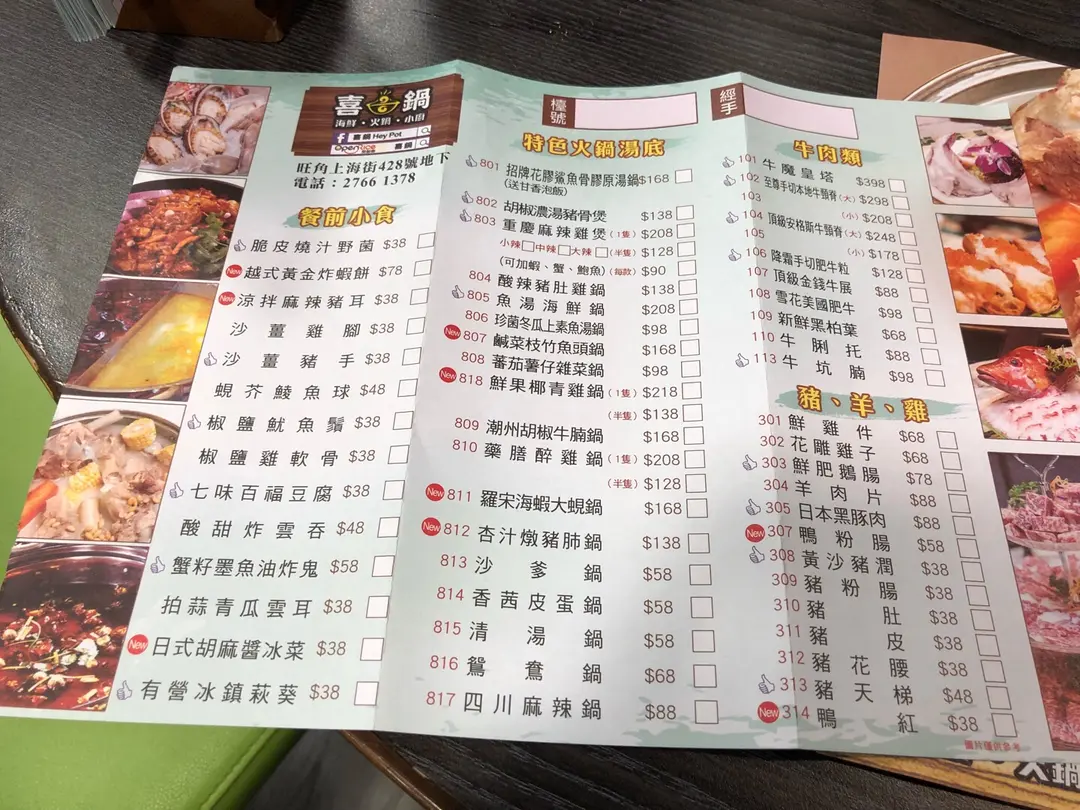 喜鍋
海鮮・火鍋・小廚
喜鍋 Hey Pot
OpenRice 喜鍋
旺角上海街428號地下
電話：2766 1378
餐前小食
脆皮燒汁野菌 $38
New 越式黃金炸蝦餅 $78
New 涼拌麻辣豬耳 $38
沙薑雞腳 $38
沙薑豬手 $38
蜆芥鯪魚球 $48
椒鹽魷魚鬚 $38
椒鹽雞軟骨 $38
七味百福豆腐 $38
酸甜炸雲吞 $48
蟹籽墨魚油炸鬼 $58
拍蒜青瓜雲耳 $38
New 日式胡麻醬冰菜 $38
有營冰鎮萩葵 $38
檯號
特色火鍋湯底
801 招牌花膠鯊魚骨膠原湯鍋 $168
(送甘香泡飯)
802 胡椒濃湯豬骨煲 $138
803 重慶麻辣雞煲 (1隻) $208
小辣 中辣 大辣 (半隻) $128
(可加蝦、蟹、鮑魚) (每款) $90
804 酸辣豬肚雞鍋 $138
805 魚湯海鮮鍋 $208
806 珍菌冬瓜上素魚湯鍋 $98
New 807 鹹菜枝竹魚頭鍋 $168
808 蕃茄薯仔雜菜鍋 $98
New 818 鮮果椰青雞鍋 (1隻) $218
(半隻) $138
809 潮州胡椒牛腩鍋 $168
810 藥膳醉雞鍋 (1隻) $208
(半隻) $128
New 811 羅宋海蝦大蜆鍋 $168
New 812 杏汁燉豬肺鍋 $138
813 沙爹鍋 $58
814 香茜皮蛋鍋 $58
815 清湯鍋 $58
816 鴛鴦鍋 $68
817 四川麻辣鍋 $88
經手
牛肉類
101 牛魔皇塔 $398
102 至尊手切本地牛頸脊 (大) $298
103 (小) $208
104 頂級安格斯牛頸脊 (大) $248
105 (小) $178
106 降霜手切肥牛粒 $128
107 頂級金錢牛展 $88
108 雪花美國肥牛 $98
109 新鮮黑柏葉 $68
110 牛脷托 $88
113 牛坑腩 $98
豬、羊、雞
301 鮮雞件 $68
302 花雕雞子 $68
303 鮮肥鵝腸 $78
304 羊肉片 $88
305 日本黑豚肉 $88
New 307 鴨粉腸 $58
308 黃沙豬潤 $38
309 豬粉腸 $38
310 豬肚 $38
311 豬皮 $38
312 豬花腰 $38
313 豬天梯 $48
New 314 鴨紅 $38
圖片僅供參考
火鍋